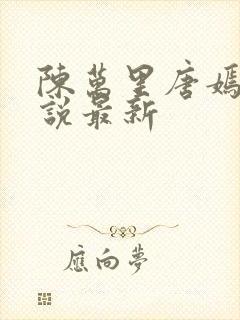 陳萬里唐嫣
說最新
應向夢